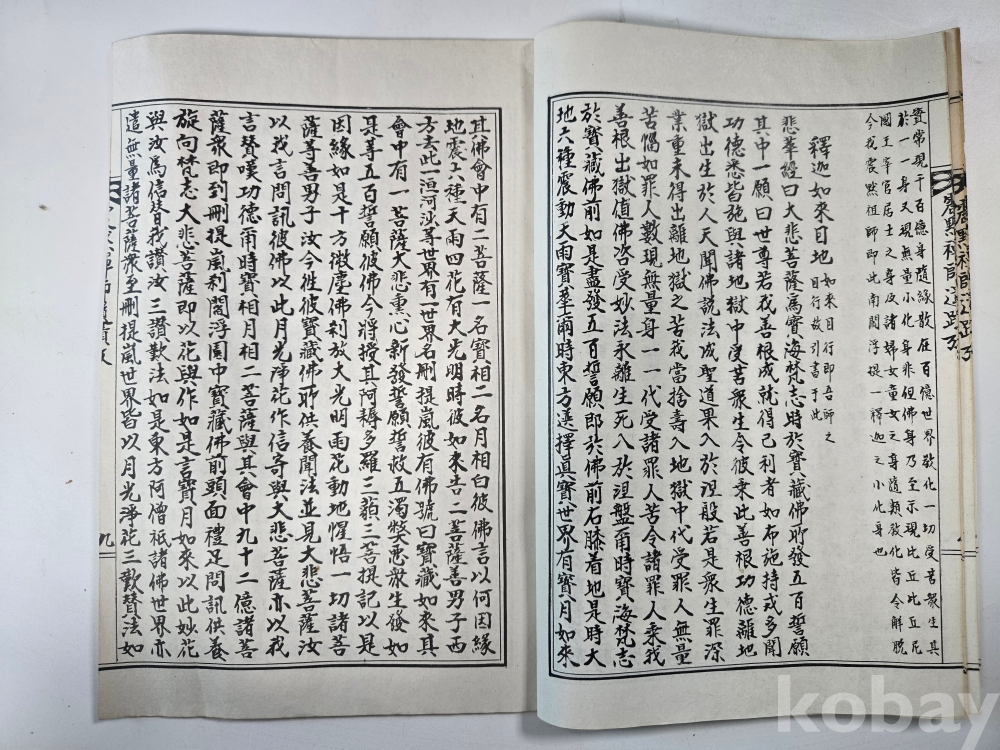 賓常現千百億身隨緣散在百億世界敎化一切受苦衆生具
於一一身又現無量小化身非但佛身乃至示現比丘比丘尼
國王宰官居士之身及諸婦女童女之身隨類發化皆令解脫
今我震黙祖師即此南閻浮提一釋迦之小化身也
釋迦如來因地
如來目行即吾師之
目行故引書于此
悲華經曰大悲菩薩爲寶海梵志時於寶藏佛所發五百誓願
其中一願曰世尊若我善根成就得己利者如布施持戒多聞
功德悉皆施與諸地獄中受苦衆生令彼乘此善根功德離地
獄出生於人天聞佛說法成聖道果入於涅般若是衆生罪深
業重未得出離地獄之苦我當捨壽入地獄中代受罪人無量
苦惱如罪人數現無量身一一代受諸罪人苦令諸罪人乘我
善根出獄值佛咨受妙法永離生死入於涅盤爾時寶海梵志
於寶藏佛前如是盡發五百誓願即於佛前右膝着地是時大
地六種震動大雨寶華爾時東方選擇眞寶世界有寶月如來
其佛會中有二菩薩一名寶相二名月相白彼佛言以何因緣
地震六種天雨四花有大光明時彼如來告二菩薩善男子西
方去此一洹河沙等世界有一世界名刪提嵐彼有佛號曰寶藏如來其
會中有一菩薩大悲熏心新發誓願誓救五濁獘惡衆生發如
是等五百誓願彼佛今將授其阿耨多羅三藐三菩提記以是
因緣如是十方微塵佛刹放大光明雨花動地惺悟一切諸菩
薩等善男子汝今徃彼寶藏佛所供養聞法並見大悲菩薩汝
以我言問訊彼佛以此月光淨花作信寄與大悲菩薩亦以我
言替嘆功德爾時寶相月相二菩薩與其會中九十二億諸菩
薩衆即到刪提嵐刹閻浮園中寶藏佛前頭面禮足問訊供養
旋向梵志大悲菩薩即以花與作如是言寶月如來以此妙花
與汝爲信替我讚汝三讃歎法如是東方阿僧祇諸佛世界亦
遣無量諸菩薩衆至刪提嵐世界皆以月光淨花三歎賛法如
九
kobay